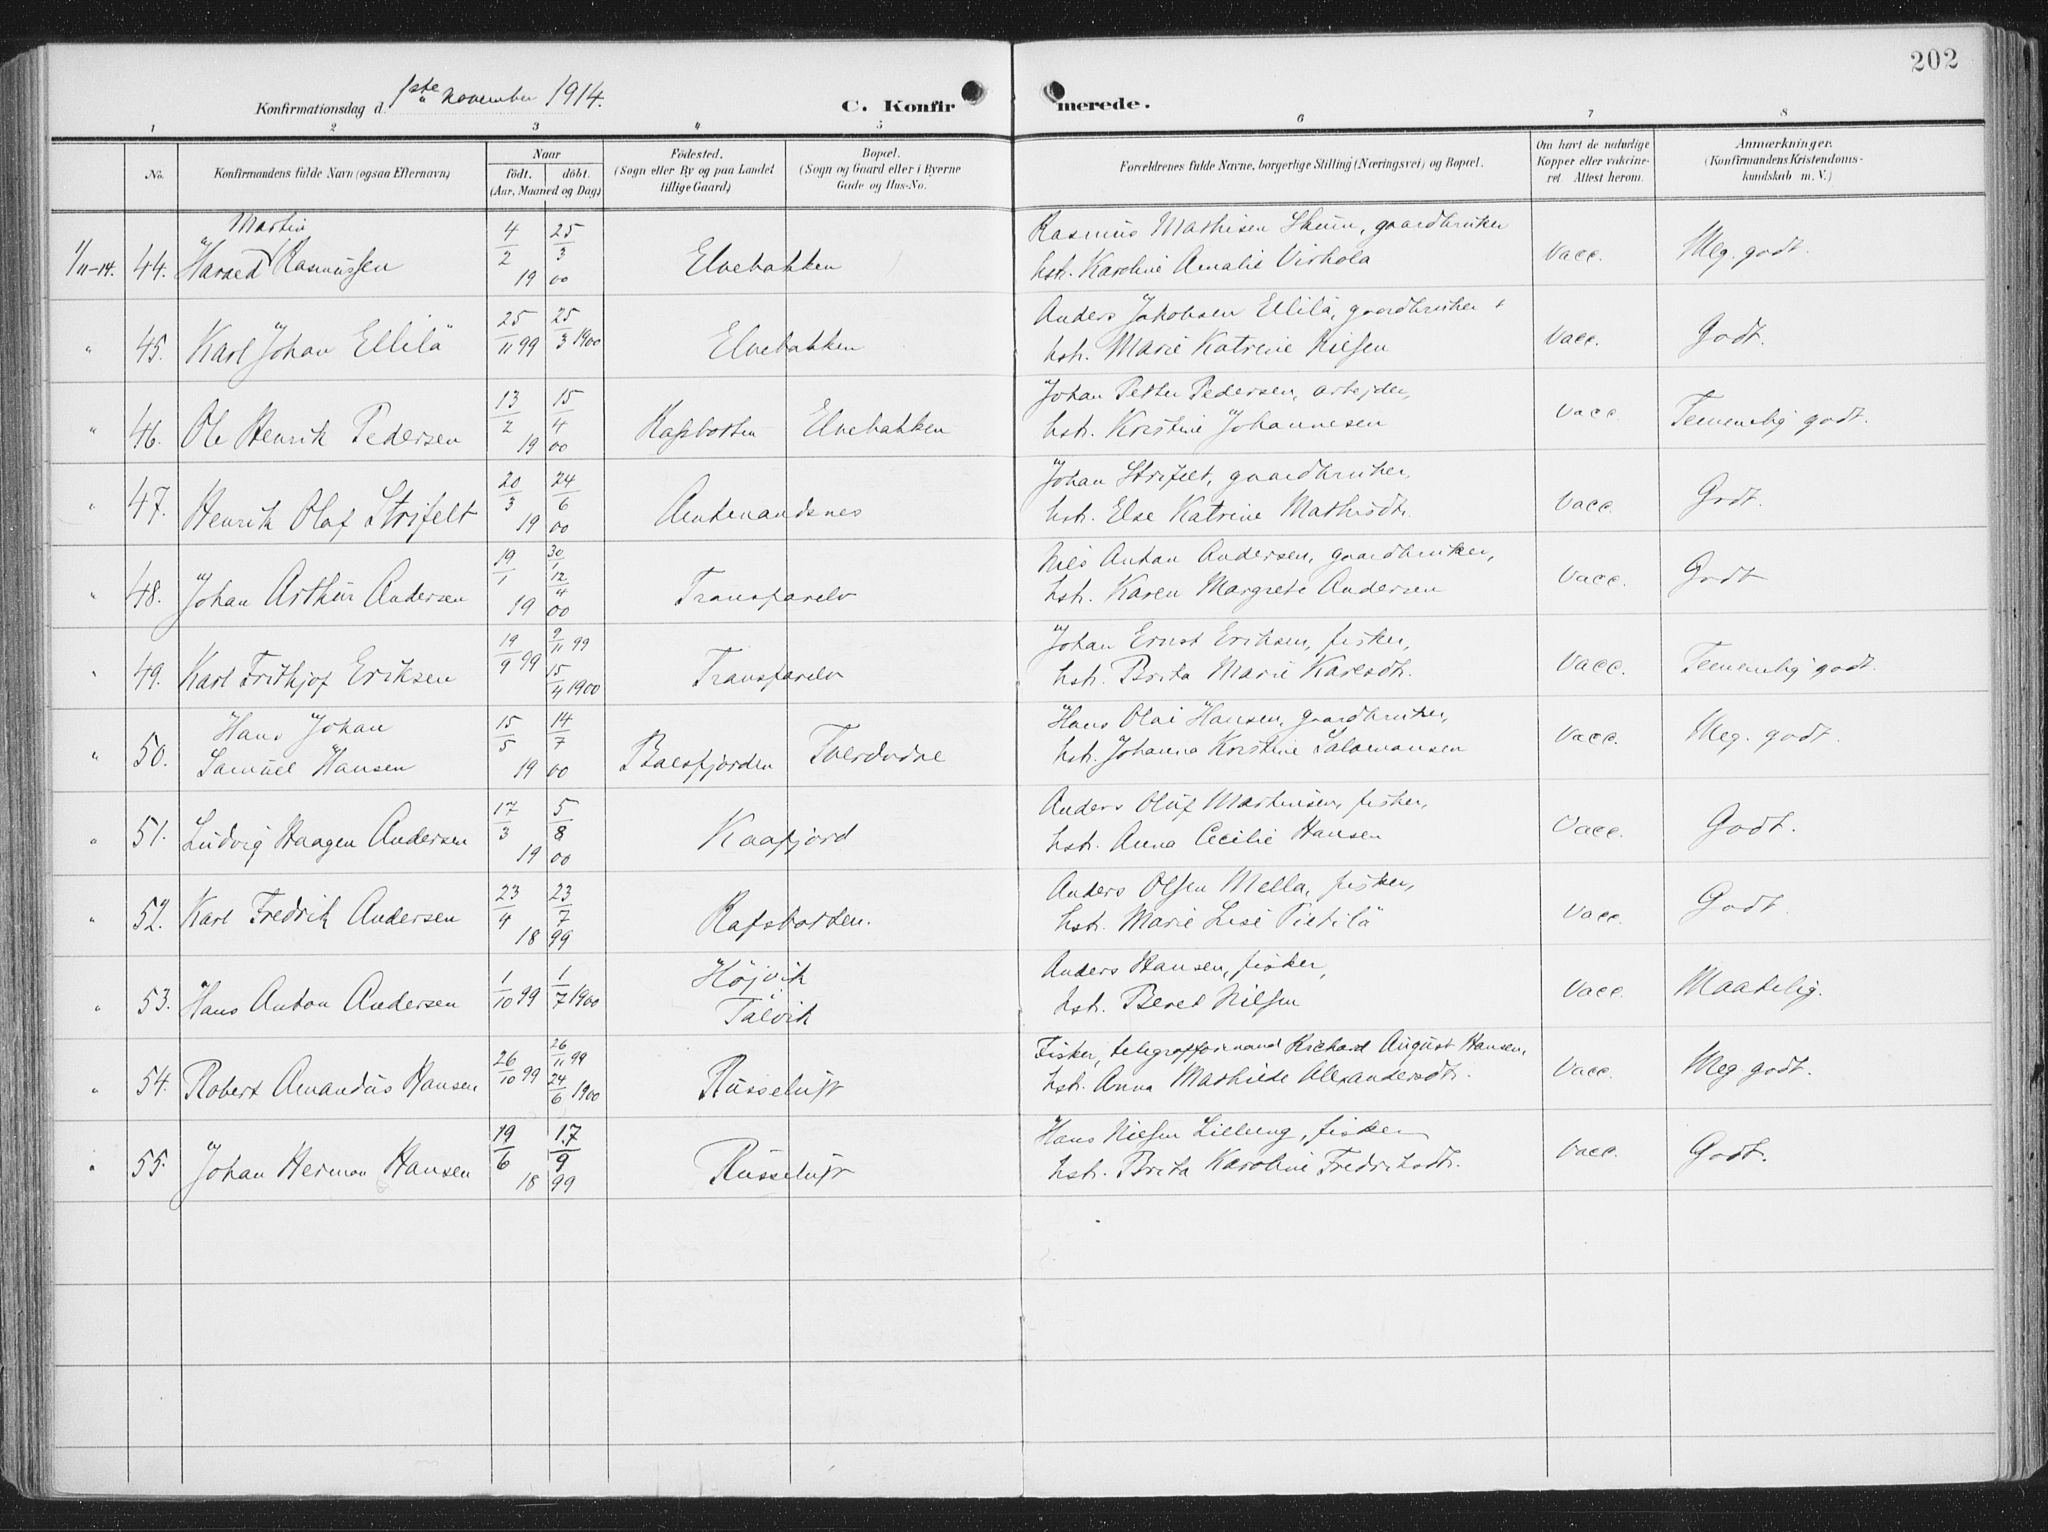 202
Konfirmationsdag d. 1ste november 1914.
C. Konfirmerede.
1 2 3 4 5 6 7 8
No.
Konfirmandens fulde Navn (ogsaa Efternavn)
Naar
født. døbt.
(Aar, Maaned og Dag)
Fødested.
(Sogn eller By og paa Landet
tillige Gaard)
Bopæl.
(Sogn og Gaard eller i Byerne
Gade og Hus-No.
Forældrenes fulde Navne, borgerlige Stilling (Næringsvei) og Bopæl.
Om havt de naturlige
Kopper eller vakcine-
ret. Attest herom.
Anmærkninger.
(Konfirmandens Kristendoms-
kundskab m. V.)
1/11-14. 44. Harald Martin Rasmussen 4/2 1900 25/3 Elvebakken
Rasmus Mathisen Skum, gaardbruker
hstr. Karoline Amalie Virkola
Vacc. Meg. godt.
" 45. Karl Johan Ellilä 25/11 99 25/3 1900 Elvebakken
Anders Jakobsen Ellilä, gaardbruker
hstr. Marie Katrine Nilsen
Vacc. Godt.
" 46. Ole Henrik Pedersen 13/2 15/4 1900 Rafsbotten Elvebakken
Johan Petter Pedersen, arbejder,
hstr. Kristine Johannesen
Vacc. Temmelig godt.
" 47. Henrik Olaf Strifelt 20/3 24/6 1900 Amtmandsnes
Johan Strifelt, gaardbruker,
hstr. Else Katrine Mathisdtr.
Vacc. Godt.
" 48. Johan Arthur Andersen 19/1 30/1 12/4 1900 Transfarelv
Nils Anton Andersen, gaardbruker,
hstr. Karen Margrete Andersen
Vacc. Godt
" 49. Karl Frithjof Eriksen 19/9 99 9/11 99 15/4 1900 Transfarelv
Johan Ernst Eriksen, fisker,
hstr. Brita Marie Karlsdtr.
Vacc. Temmelig godt.
" 50. Hans Johan
Samuel Hansen 15/5 14/7 1900 Balsfjorden Tverdvdne
Hans Olai Hansen, gaardbruker,
hstr. Johanna Kristine Salamonsen
Vacc. Meg. godt.
" 51. Ludvig Haagen Andersen 17/3 5/8 1900 Kaafjord
Anders Oluf Martinsen, fisker,
hstr. Anna Cecilie Hansen
Vacc. Godt.
" 52. Karl Fredrik Andersen 23/4 23/7 1899 Rafsbotten.
Anders Olsen Mella, fisker,
hstr. Marie Lise Pietilä
Vacc. Godt.
" 53. Hans Anton Andersen 1/10 99 1/7 1900 Højvik
Talvik
Anders Hansen, fisker,
hstr. Beret Nilsen
Vacc. Maadelig.
" 54. Robert Amandus Hansen 26/10 99 26/11 99 24/6 1900 Russeluft
Fisker, telegrafformand Richard August Hansen,
hstr. Anna Mathilde Alexandersdtr.
Vacc. Meg godt.
" 55. Johan Herman Hansen 19/6 17/9 1899 Russeluft
Hans Nilsen Lilleng, fisker
hstr. Brita Karoline Fredriksdtr.
Vacc. Godt.